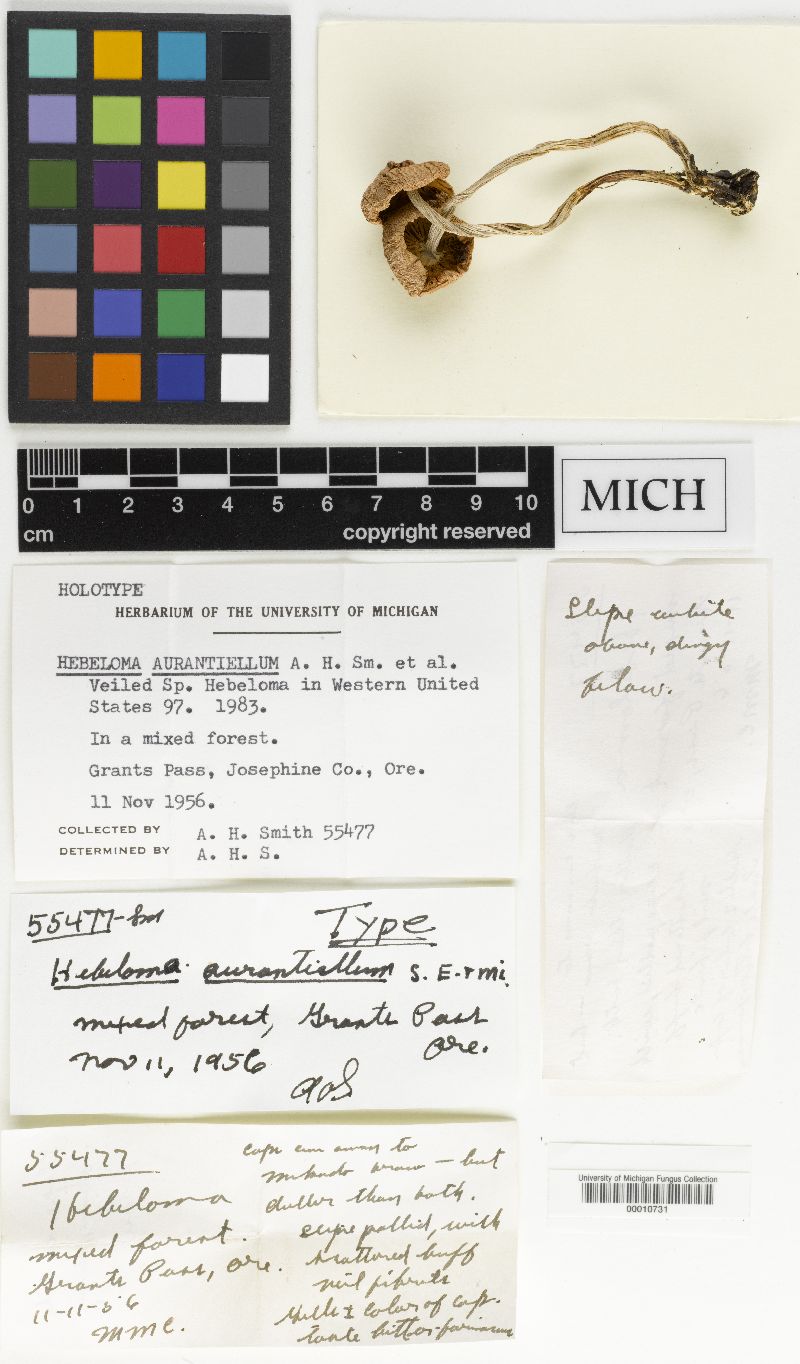 0 1 2 3 4 5 6 7 8 9 10
cm
copyright reserved
MICH
HOLOTYPE
HERBARIUM OF THE UNIVERSITY OF MICHIGAN
HEBELOMA AURANTIELLUM A. H. Sm. et al.
Veiled Sp. Hebeloma in Western United
States 97. 1983.
In a mixed forest.
Grants Pass, Josephine Co., Ore.
11 Nov 1956.
COLLECTED BY A. H. Smith 55477
DETERMINED BY A. H. S.
Stipe white
above, dingy
below.
55477-Sm
Type
Hebeloma aurantiellum S. E. + Mi.
mixed forest, Grants Pass
Ore.
Nov 11, 1956
AHS
55477
Hebeloma
mixed forest.
Grants Pass, Ore.
11-11-56
MMC.
caps to
mikado brown – but
duller than both.
stipe pallid, with
scattered buff
veil fibrils
Gills ± color of cap.
taste bitter-farinaceous
University of Michigan Fungus Collection
00010731